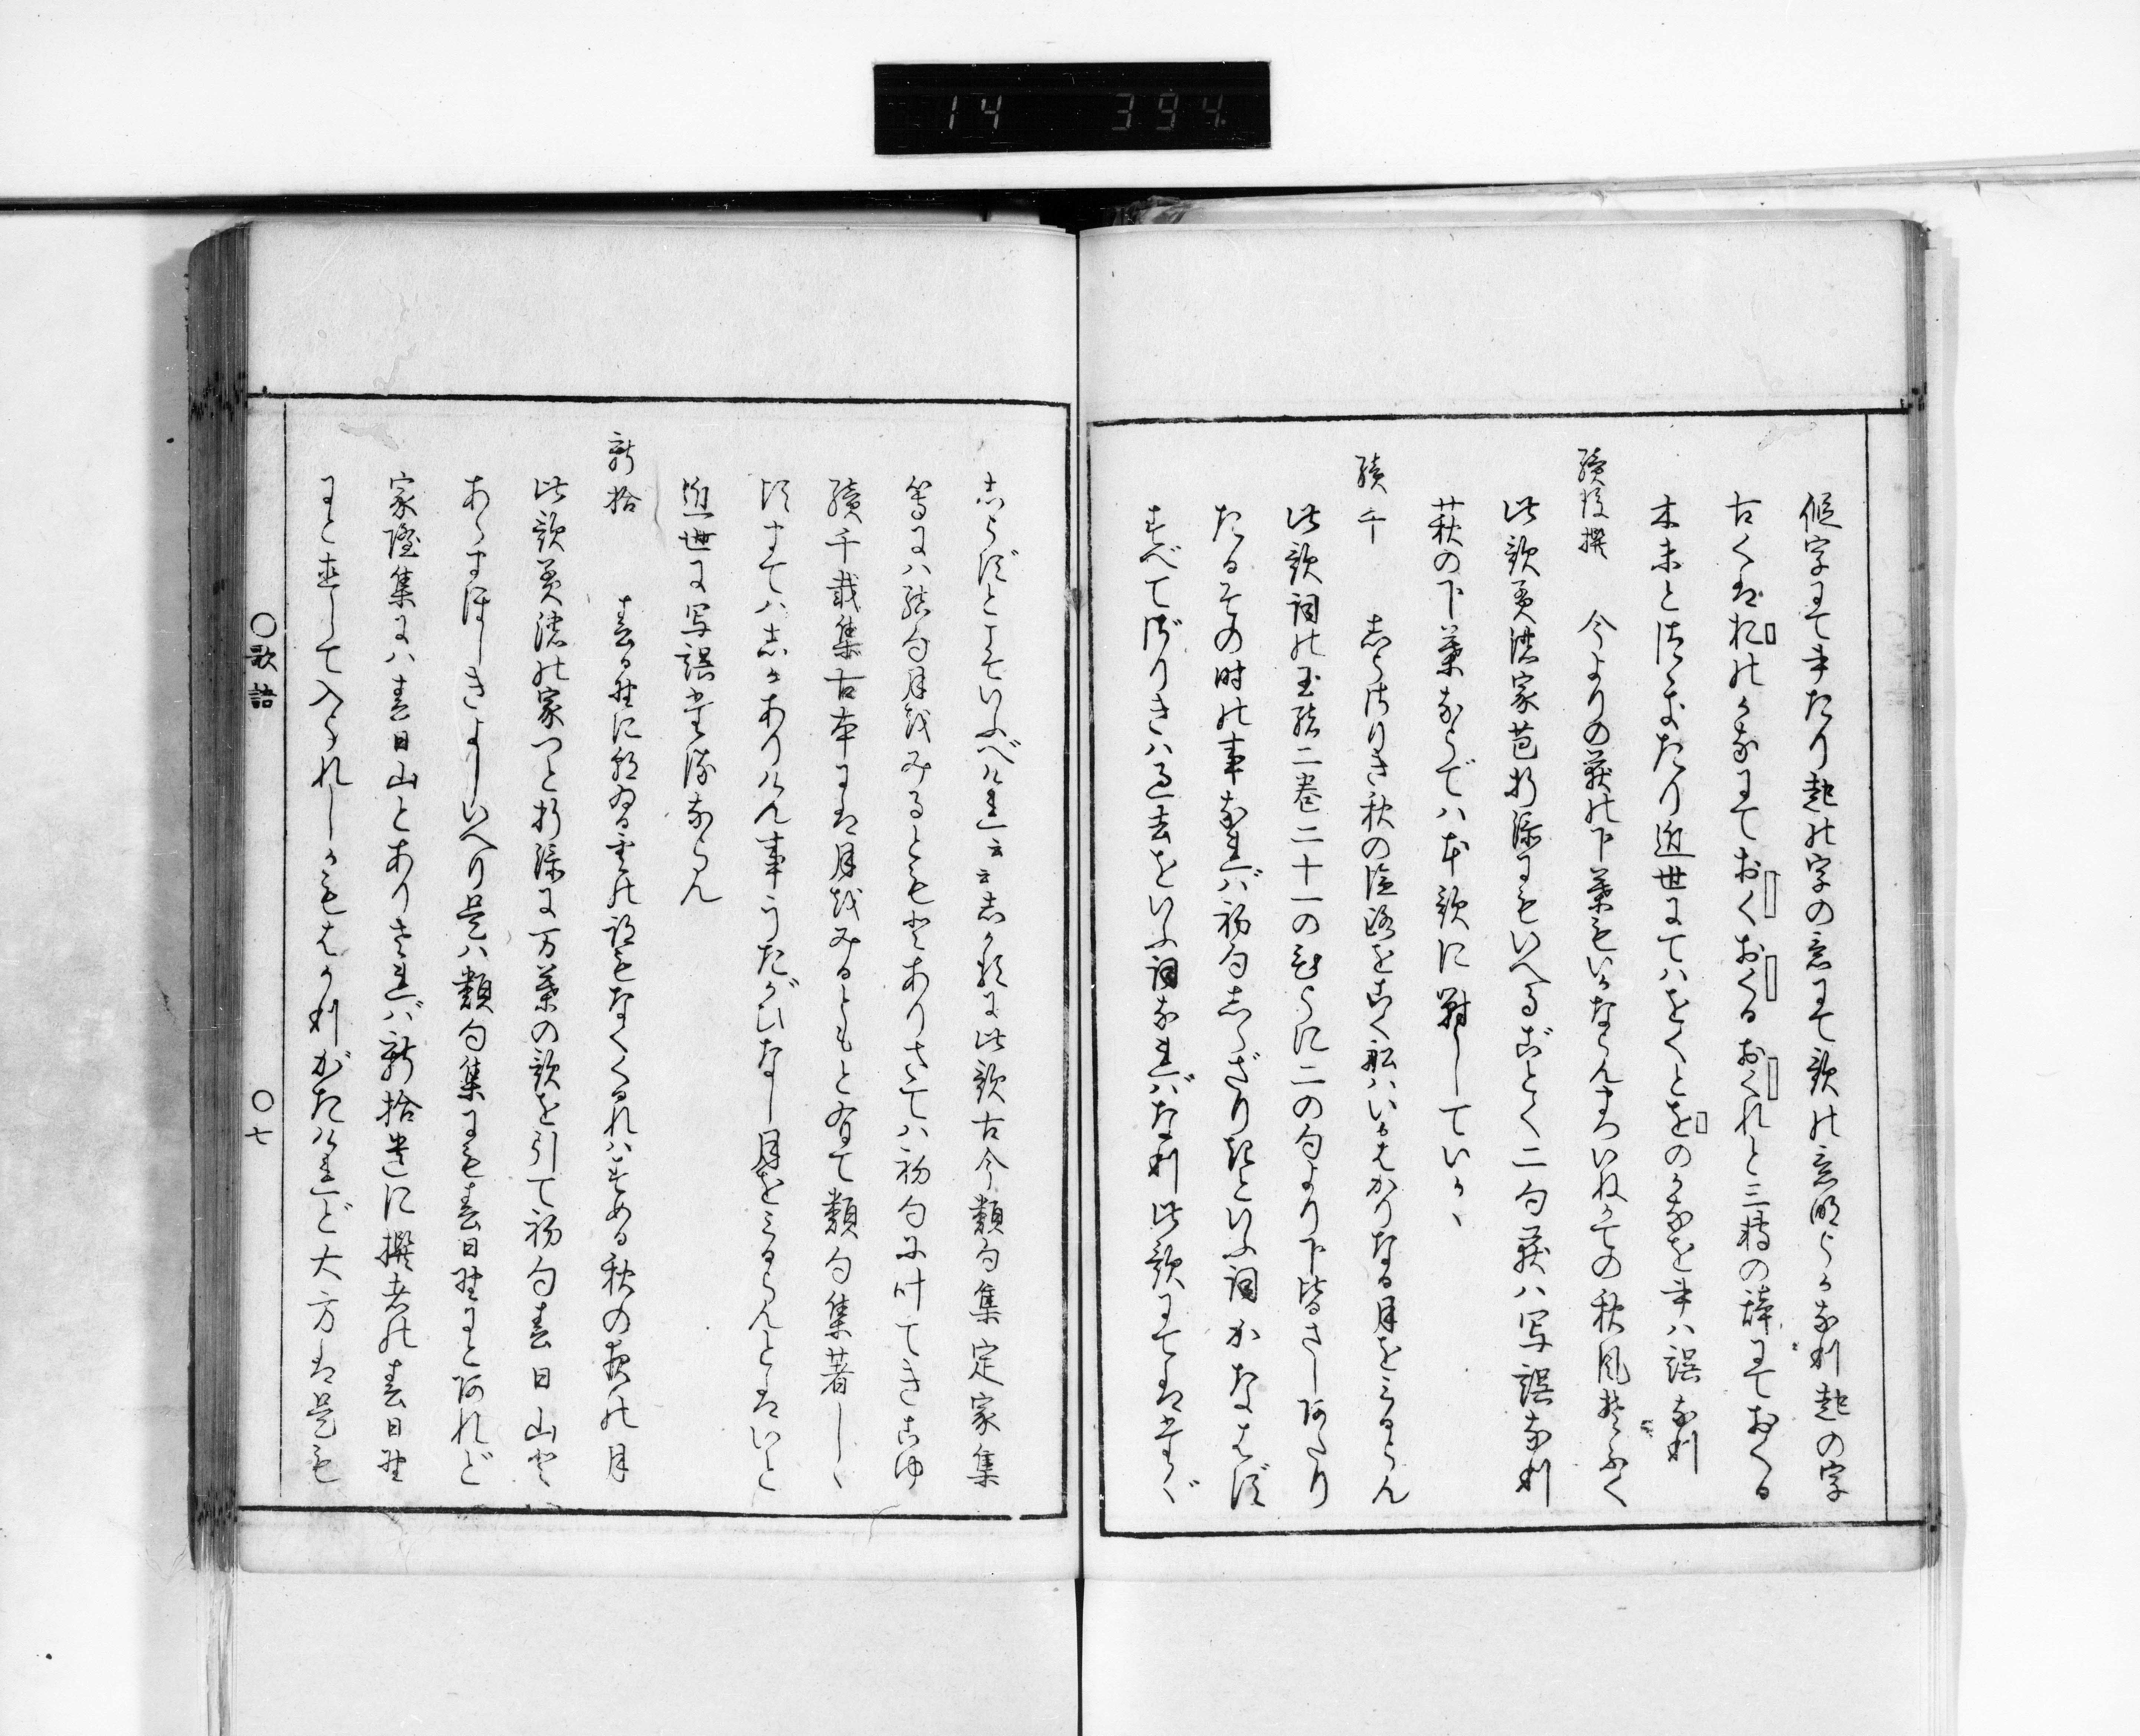 14 394
仮字にて書たり起の字の意にて歌の意明らか也起の字
古くはおのかなにておくおくるおくれと三転の辞にておくる
本末とはたらきたり近世にてはをくとをのかなを書は誤なり
続後撰 今よりの荻の下葉もいかならんまついねかての秋風そふく
此歌美濃家苞折添にもいへるごとく二句荻ハ写誤なり
萩の下葉ならでハ本歌に対していかゝ
続千 しらさりき秋の塩路をこく船ハいかはかりなる月をみるらん
此歌詞の玉緒二巻二十一のひらに二の句より下皆さしあたり
たるその時の事なれバ初句しらざりきといふ詞かなはず
すべてざりきハ過去をいふ詞なれバなり此歌にてはたゞ
しらずとこそいふべけれ云云しかるに此歌古今類句集定家集
等にハ結句月をみるともとありさてハ初句に叶てきこゆ
続千載集古本には月をみるともと有て類句集著しゝ
頃まてハしかありけん事うたがひなし月をみるらんとはいと
近世に写誤たるならん
新拾 春日野に朝ゐる雲の跡もなくくるれハすめる秋の夜の月
此歌美濃の家つと折添に万葉の歌を引て初句春日山と
あらまほしきよしいへり是ハ類句集にも春日野にとあれど
家隆集にハ春日山とありされバ新拾遺に撰者の春日野
にと直して入られしかもはかりがたけれど大方は是も
〇歌語 〇七